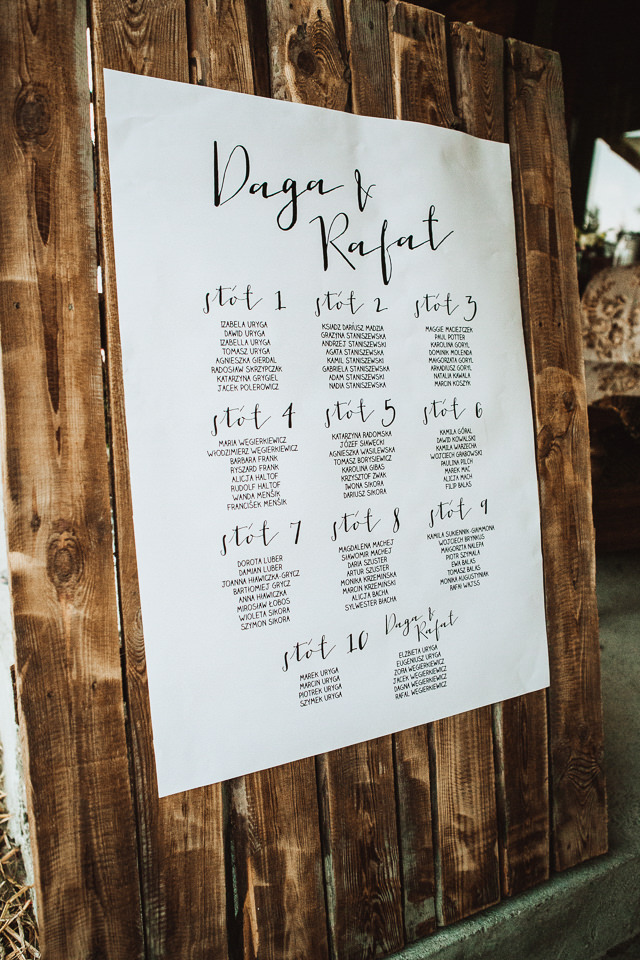 Daga &
Rafał
stół 1
IZABELA URYGA
DAWID URYGA
IZABELLA URYGA
TOMASZ URYGA
AGNIESZKA GIERDAL
RADOSŁAW SKRZYPCZAK
KATARZYNA GRYGIEL
JACEK POLEROWICZ
stół 2
KSIĄDZ DARIUSZ MADZIA
GRAŻYNA STANISZEWSKI
ANDRZEJ STANISZEWSKI
AGATA STANISZEWSKI
KAMIL STANISZEWSKI
GABRIELA STANISZEWSKI
ADAM STANISZEWSKI
NADIA STANISZEWSKI
stół 3
MAGGIE MACIEJCZEK
PAUL POTTER
KAROLINA GORYL
DOMINIK MOLENDA
MAŁGORZATA GORYL
ARKADIUSZ GORYL
NATALIA KAWALA
MARCIN KOSZYK
stół 4
MARIA WEGIERKIEWICZ
WŁODZIMIERZ WEGIERKIEWICZ
BARBARA FRANK
RYSZARD FRANK
ALICJA HALTOF
RUDOLF HALTOF
WANDA MENŚIK
FRANCIŠEK MENŚIK
stół 5
KATARZYNA RADOMSKA
JÓZEF SŁAWECKI
AGNIESZKA WASILEWSKA
TOMASZ BORYSIEWICZ
KAROLINA GIBAS
KRZYSZTOF ZWAK
IWONA SIKORA
DARIUSZ SIKORA
stół 6
KAMILA GÓRAL
DAWID KOWALSKI
KAMILA WARZECHA
WOJCIECH GRABOWSKI
PAULINA PILCH
MAREK MAĆ
ALICJA MACH
FILIP BALAS
stół 7
DOROTA LUBER
DAMIAN LUBER
JOANNA HŁAWICZKA-GRYCZ
BARTHOMIEJ GRYCZ
ANNA HŁAWICZKA
MIROSŁAW ŁOBOS
WIOLETA SIKORA
SZYMON SIKORA
stół 8
MAGDALENA MACHEJ
SŁAWOMIR MACHEJ
DARIA SZUSTER
ARTUR SZUSTER
MONIKA KRZEMINSKA
MARCIN KRZEMINSKI
ALICJA BACHA
SYLWESTER BŁACHA
stół 9
KAMILA SUKIENNIK-GIAMMONA
WOJCIECH BRYNKUS
MAŁGORZTA NALEPA
PIOTR SZYMALA
EWA BALAS
TOMASZ BALAS
MONIKA AUGUSTYNIAK
RAFAŁ WAJSS
stół 10
MAREK URYGA
MARCIN URYGA
PIOTREK URYGA
SZYMEK URYGA
Daga &
Rafał
ELŻBIETA URYGA
EUGENIUSZ URYGA
ZOFIA WEGIERKIEWICZ
JACEK WEGIERKIEWICZ
DAGNA WEGIERKIEWICZ
RAFAŁ WEGIERKIEWICZ